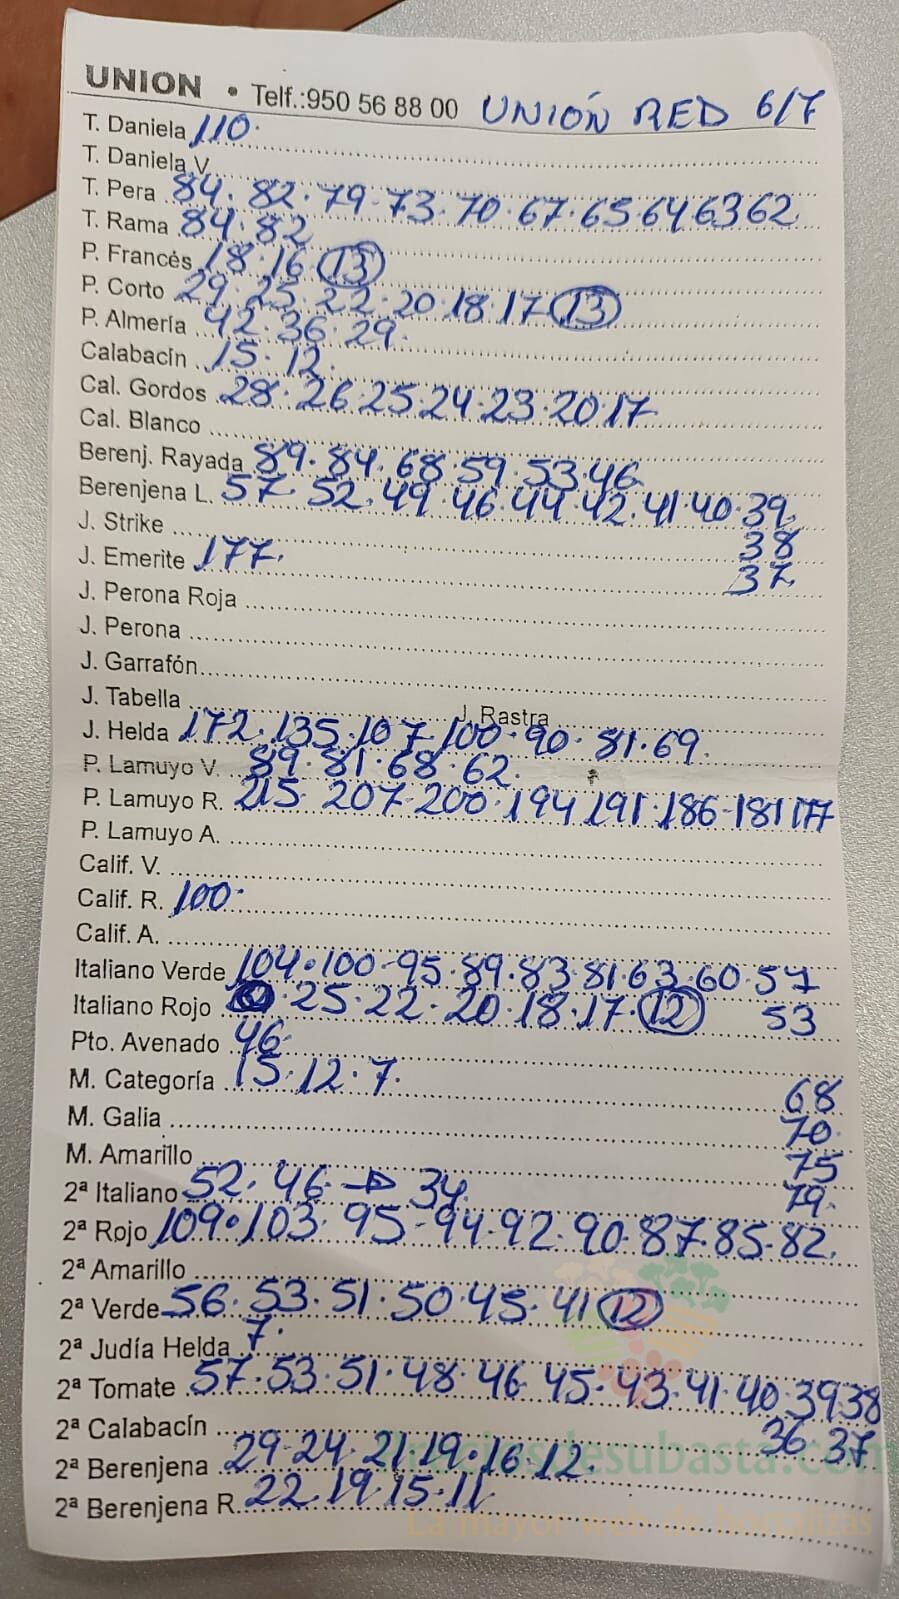 UNION • Telf.:950 56 88 00 UNIÓN RED 6/7
T. Daniela 110.
T. Daniela V.
T. Pera 84. 82. 79. 73. 70. 67. 65 64 63 62
T. Rama 84. 82
P. Francés 18. 16 13
P. Corto 29. 25. 22. 20. 18. 17 13
P. Almería 42. 36. 29.
Calabacín 15. 12.
Cal. Gordos 28. 26. 25. 24. 23. 20. 17
Cal. Blanco
Berenj. Rayada 89. 84. 68. 59. 53. 46
Berenjena L. 57. 52. 49. 46. 44. 42. 41. 40. 39
J. Strike 38
J. Emerite 177. 37
J. Perona Roja
J. Perona
J. Garrafón
J. Tabella J. Rastra
J. Helda 172. 135. 107. 100. 90. 81. 69.
P. Lamuyo V. 89. 81. 68. 62.
P. Lamuyo R. 215. 207. 200. 194 191. 186-181 177
P. Lamuyo A.
Calif. V.
Calif. R. 100.
Calif. A.
Italiano Verde 104. 100-95. 89. 83. 81. 63. 60. 57
Italiano Rojo 25. 22. 20. 18. 17. 12 53
Pto. Avenado 46.
M. Categoría 15. 12. 7. 68
M. Galia 70.
M. Amarillo 75
2ª Italiano 52. 46 → 34. 79.
2ª Rojo 109. 103. 95-94-92. 90. 87. 85. 82.
2ª Amarillo
2ª Verde 56. 53. 51. 50. 45. 41 12
2ª Judía Helda 7.
2ª Tomate 57. 53. 51. 48. 46. 45. 43. 41. 40. 39 38
2ª Calabacín 36. 37
2ª Berenjena 29-24. 21. 19. 16. 12.
2ª Berenjena R. 22. 19. 15. 11
preciosdesubasta.com
La mayor web de hortalizas